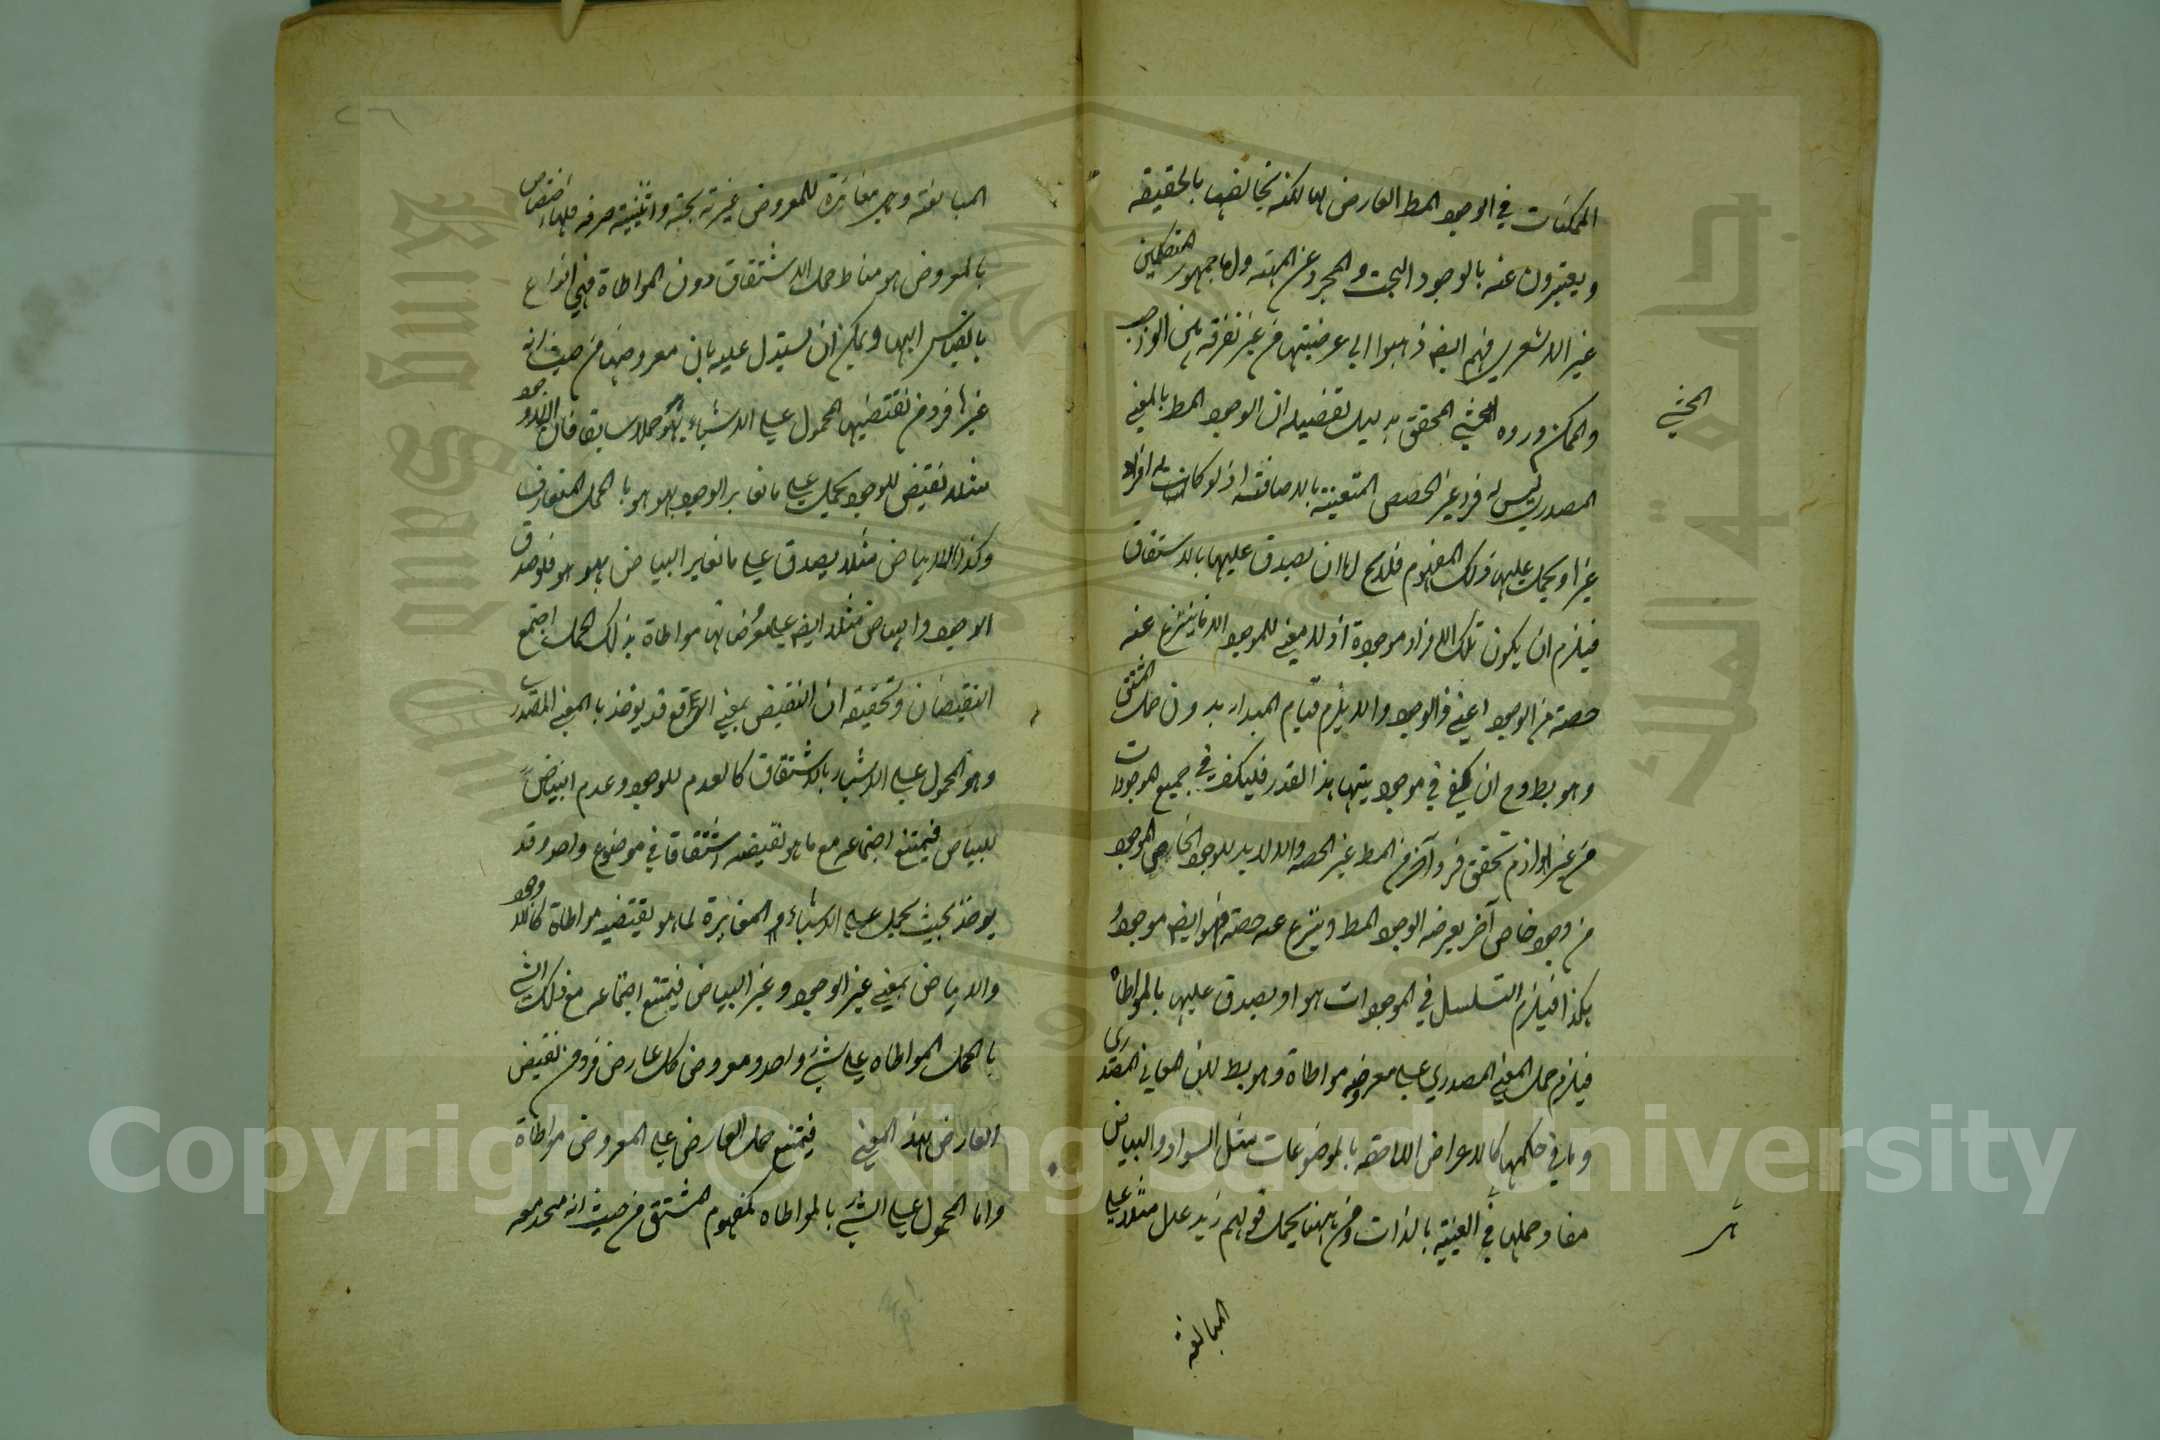 الممكنات في الوجود المط العارض لها لكنه يخالفها بالحقيقة
ويعبرون عنه بالوجود البحت والمجرد عن المهية واما جمهور المتكلمين
غير الاشعري فهم ايضا ذهبوا الى عرضيتها من غير تفرقة بين الواجب
والممكن ورده المحشي المحقق بدليل تفصيله ان الوجود المط بالمعنى
المحشي
المصدري ليس له فرد غير الحصص المتعينة بالاضافة اذ لو كانت له افراد
غيرها ويحمل عليها ذلك المفهوم فلا يخ اما ان يصدق عليها بالاشتقاق
فيلزم ان يكون تلك الافراد موجودة اذ لا معنى للموجود الا ما ينتزع عنه
حصة من الوجود اعني ذو الوجود والا يلزم قيام المبدا بدون حمل المشتق
وهو بط وح ان يكفي في موجوديتها هذا القدر فليكف في جميع الموجودات
من غير لزوم تحقق فرد آخر من المط غير الحصة والا لا بد للوجود الخاص الموجود
من وجود خاص آخر يعرضه الوجود المط وينتزع عنه حصة فهو ايضا موجود
هكذا فيلزم التسلسل في الموجودات هو او يصدق عليها بالمواطاة
فيلزم حمل المعنى المصدري على معروضه مواطاة وهو بط لان المعاني المصدرى
وما في حكمها كالاعراض اللاحقة بالموضوعات مثل السواد والبياض
مفاد حملها في العينية بالذات ومن ههنا يحمل قولهم زيد عدل مثلا على
المبالغة
المبالغة وهي مغائرة للمعروض غيرية بحتة واثنينية صرفة فلها اختصاص
بالمعروض هو مناط حمل الاشتقاق دون المواطاة فهي انواع
بالقياس اليها ويمكن ان يستدل عليه بان معروضها من حيث انه
غيرها فرد من نقيضها المحمول على الاشياء حملا سابق فان اللاوجود
مثلا نقيض للوجود يحمل على ما تغاير الوجود بهو هو بالحمل المتعارف
وكذا اللابياض مثلا يصدق على ما تغاير البياض بهو هو فلو صدق
الوجود والبياض مثلا ايضا على معروضاتها مواطاة بذلك الحمل اجتمع
النقيضان وتحقيقه ان النقيض بمعنى الرفع قد يوخذ بالمعنى المصدر
وهو المحمول على الاشياء بالاشتقاق كالعدم للوجود وعدم البياض
للبياض فيمتنع اجتماعه مع ما هو نقيضه اشتقاقا في موضوع واحد وقد
يوخذ بحيث يحمل على الاشياء المغايرة لما هو نقيضه مواطاة كاللاوجود
واللابياض بمعنى غير الوجود وغير البياض فيمتنع اجتماعه مع ذلك الشى
بالحمل المواطاه على شئ واحد ومعروض كل عارض فرد من نقيض
العارض بهذا المعنى فيمتنع حمل العارض على المعروض مواطاة
واما المحمول على الشئ بالمواطاه كمفهوم المشتق من حيث انه متحد معه